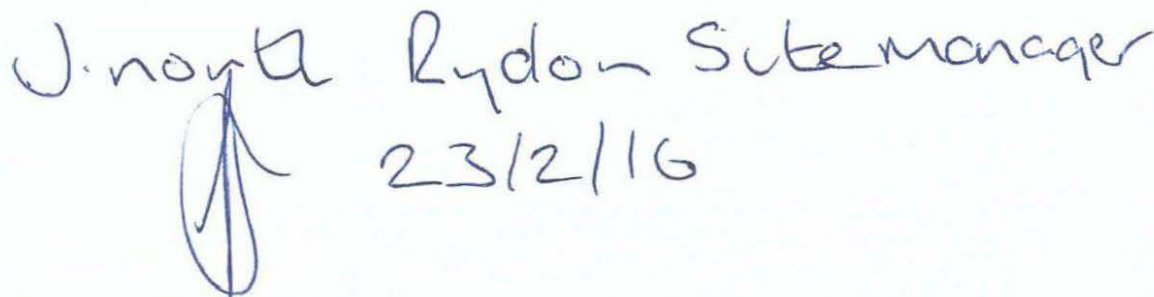 J. north Rydon Site manager
23/2/16